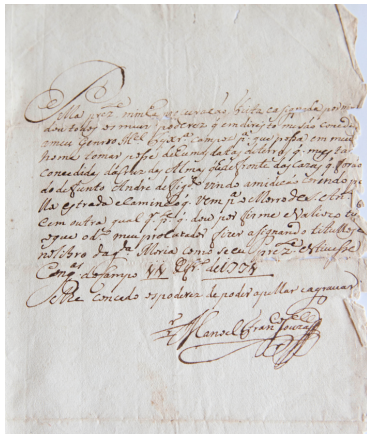 Pella prez.^te minha procuraçaõ feita e asignada por mi
dou todos os meus poderes q̃ em direyto me saõ concedidos
a meu Genro M.^el p.^a q̃ possa em meu
nome tomar posse de huma data de terras q̃ me esta
concedida da Cruz das Almas defronte das cazas q̃ foraõ
do defunto Andre de vindo a medicaõ correndo pe
lla estrada e Caminho q̃ vem p.^a o Morro de S. Ant.^o
e em outra qual q.^r p.^te q̃ dou por firme e valiozo tu
do que o d.^o meu procurador fizer asignando titullo e
no Livro da g.^da Moria como se eu prez.^te estivesse
Cong.^as do Campo 11 de 1771
e lhe concedo os poderes de poder apellar e agravar
Manoel Fran.^co Souza